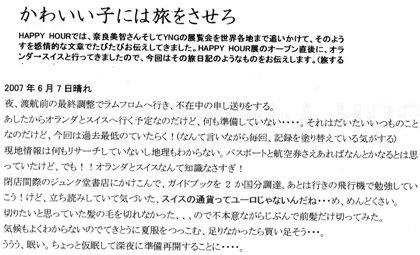 かわいい子には旅をさせろ
HAPPY HOURでは、奈良美智さんそしてYNGの展覧会を世界各地まで追いかけて、そのよ
うすを感情的な文章でたびたびお伝えしてきました。HAPPY HOUR展のオープン直後に、オラ
ンダースイスと行ってきましたので、今回はその旅日記のようなものをお伝えします。(旅する
2007年6月7日晴れ
夜、渡航前の最終調整でラムフロムへ行き、不在中の申し送りをする。
あしたからオランダとスイスへ行く予定なのだけど、何も準備していない・・・・。それはだいたいいつものこと
なのだけど、今回は過去最低のていたらく！(なんて言いながら毎回、記録を塗り替えている気がする)
現地情報は何もリサーチしていないし地理もわからない。パスポートと航空券さえあればなんとかなるとは思
っていたけど、でも！！オランダとスイスなんて知識なさすぎ！
閉店間際のジュンク堂書店にかけこんで、ガイドブックを2か国分調達。あとは行きの飛行機で勉強してい
こう！けど、立ち読みしていて気づいた、スイスの通貨ってユーロじゃないんだね・・・め、めんどくさい。
切りたいと思っていた髪の毛を切れなかった、、、ので不本意ながらじぶんで前髪だけ切ってみた。
気候もよくわからないのでてきとうに夏服をつっこむ、足りなかったら買い足そう・・・。
ううう、眠い。ちょっと仮眠して深夜に準備再開することに・・・・。